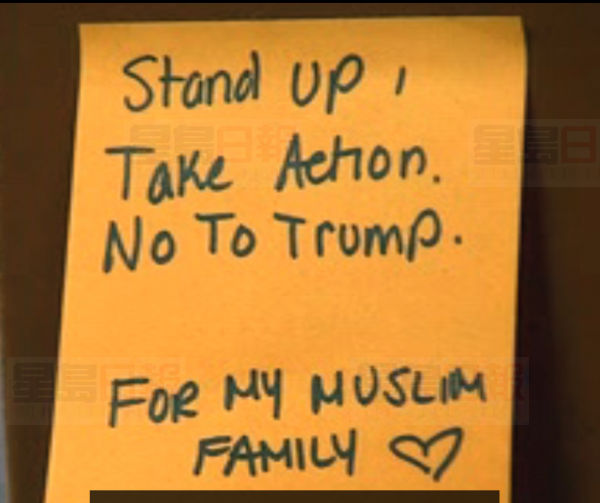 Stand UP,
Take Action.
No To Trump.
FOR MY MUSLIM
FAMILY ♡
星島日報
星島日
星島日報